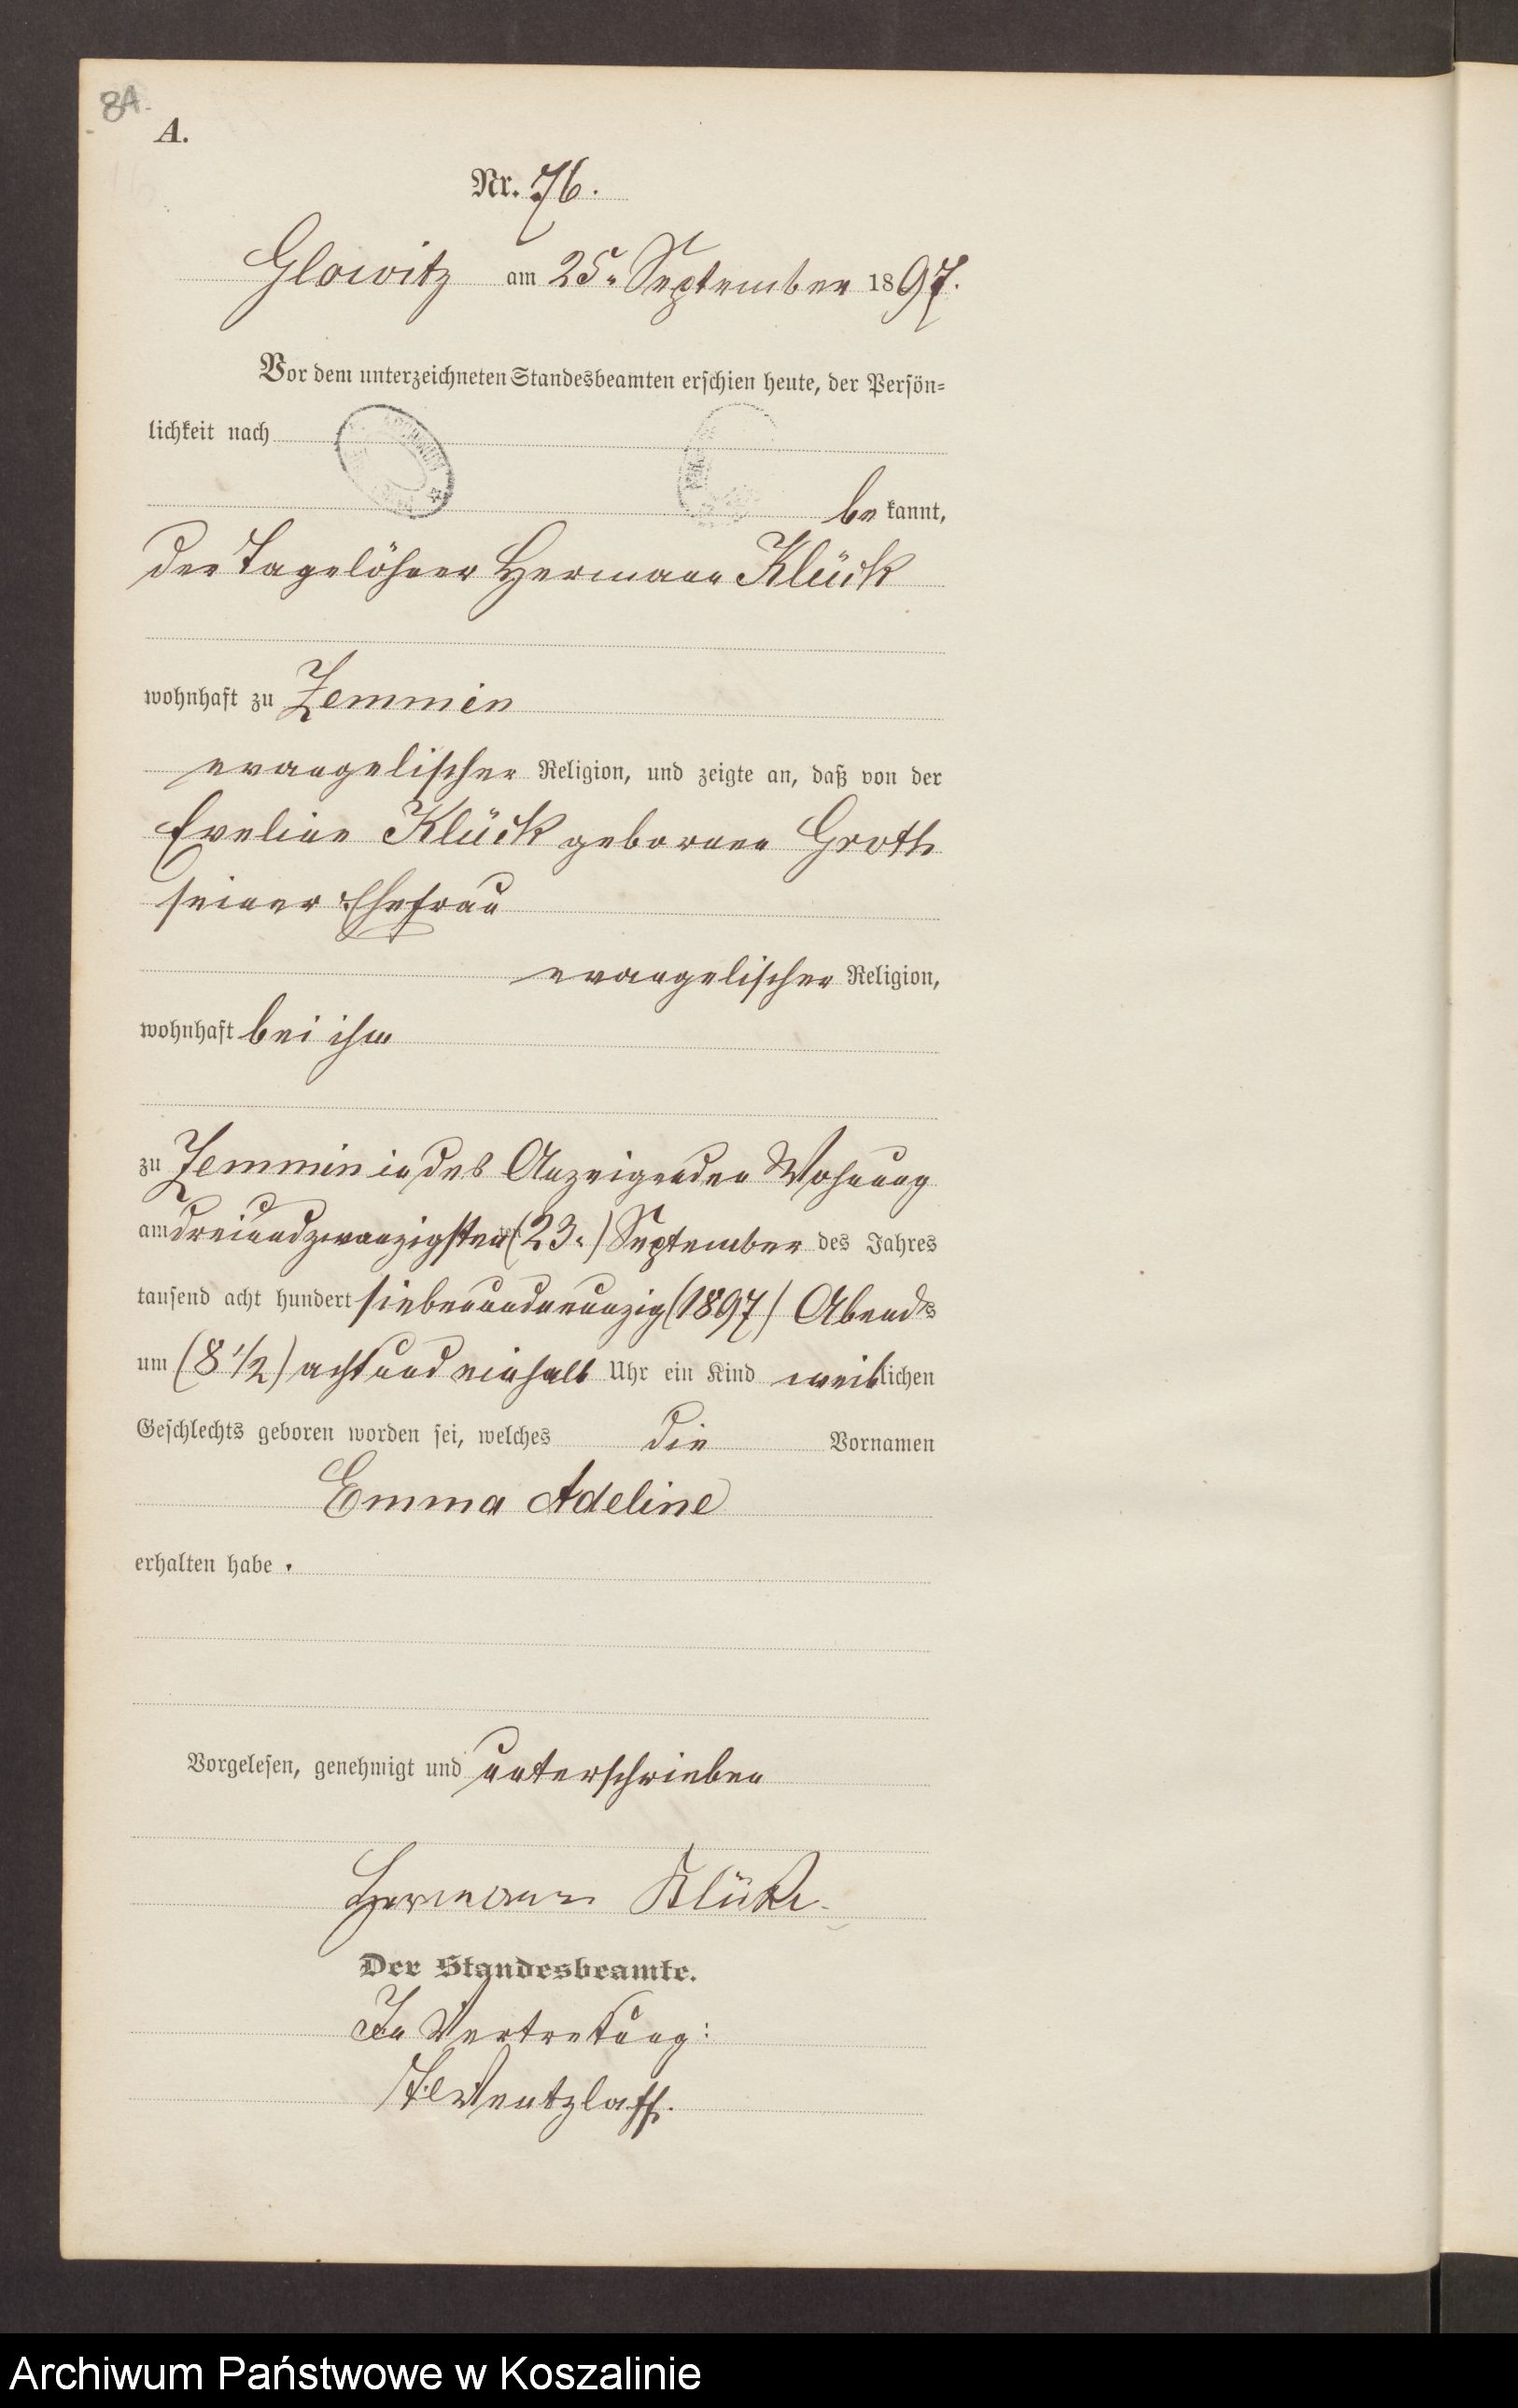 84.
A.
Nr. 76.
Glowitz am 25. September 1897.
Vor dem unterzeichneten Standesbeamten erschien heute, der Persön=
lichkeit nach
bekannt,
der Tagelöhner Hermann Klück
wohnhaft zu Zemmin
evangelischer Religion, und zeigte an, daß von der
Eveline Klück geborenen Groth
seiner Ehefrau
evangelischer Religion,
wohnhaft bei ihm
zu Zemmin in des Anzeigenden Wohnung
am dreiundzwanzigsten (23.) September des Jahres
tausend acht hundert siebenundneunzig (1897) Abends
um (8 1/2) acht und einhalb Uhr ein Kind weiblichen
Geschlechts geboren worden sei, welches die Vornamen
Emma Adeline
erhalten habe.
Vorgelesen, genehmigt und unterschrieben
Hermann Klück.
Der Standesbeamte.
In Vertretung:
Wentzlaff.
Archiwum Państwowe w Koszalinie